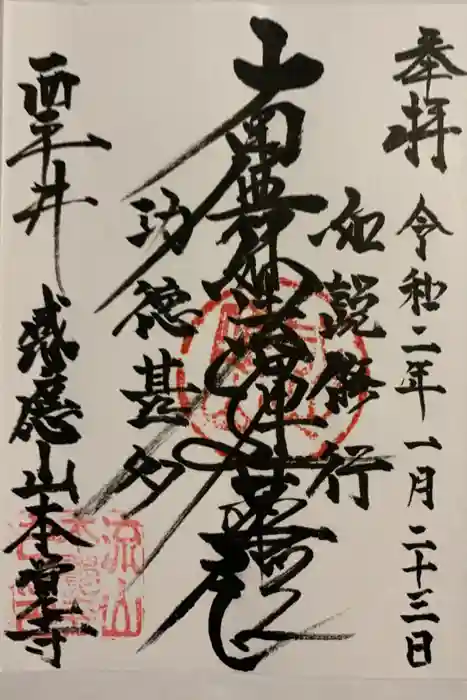 奉拝 令和二年一月二十三日
如説修行
南無妙法蓮華経
功徳甚多
西平井 感應山本覚寺
流山